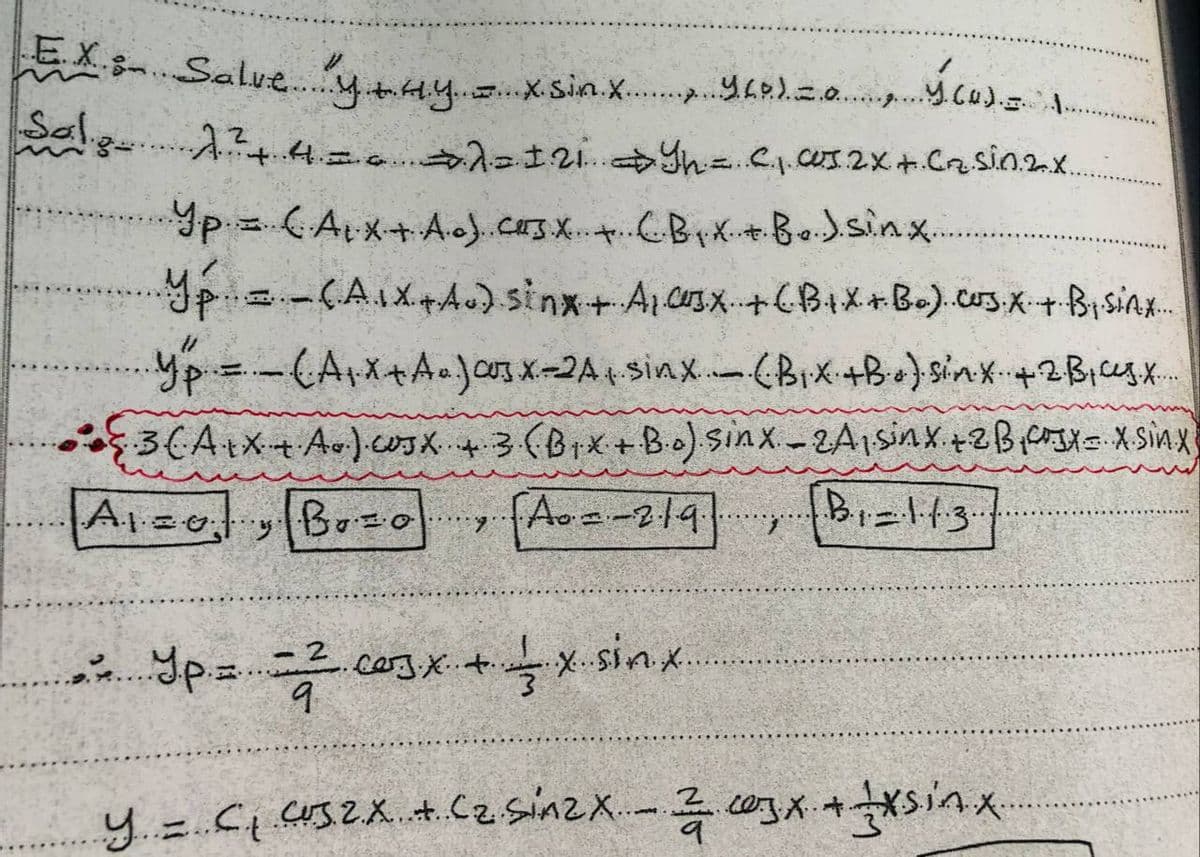 EX:- Salve y″+4y = x sin x , y(0)=0 , y′(0)= 1
Sol:- λ²+4=0 ⇒ λ=±2i ⇒ yh = C₁ cos 2x + C₂ sin 2x
yp = (A₁x+A₀) cos x + (B₁x+B₀) sin x
yp′ = -(A₁x+A₀) sin x + A₁ cos x + (B₁x+B₀) cos x + B₁ sin x
yp″ = -(A₁x+A₀) cos x -2A₁ sin x -(B₁x+B₀) sin x +2B₁ cos x
∴ 3(A₁x+A₀) cos x + 3(B₁x+B₀) sin x -2A₁ sin x +2B₁ cos x = x sin x
A₁=0 , B₀=0 , A₀=-2/9 , B₁=1/3
∴ yp = -2/9 cos x + 1/3 x sin x
y = C₁ cos 2x + C₂ sin 2x - 2/9 cos x + 1/3 x sin x